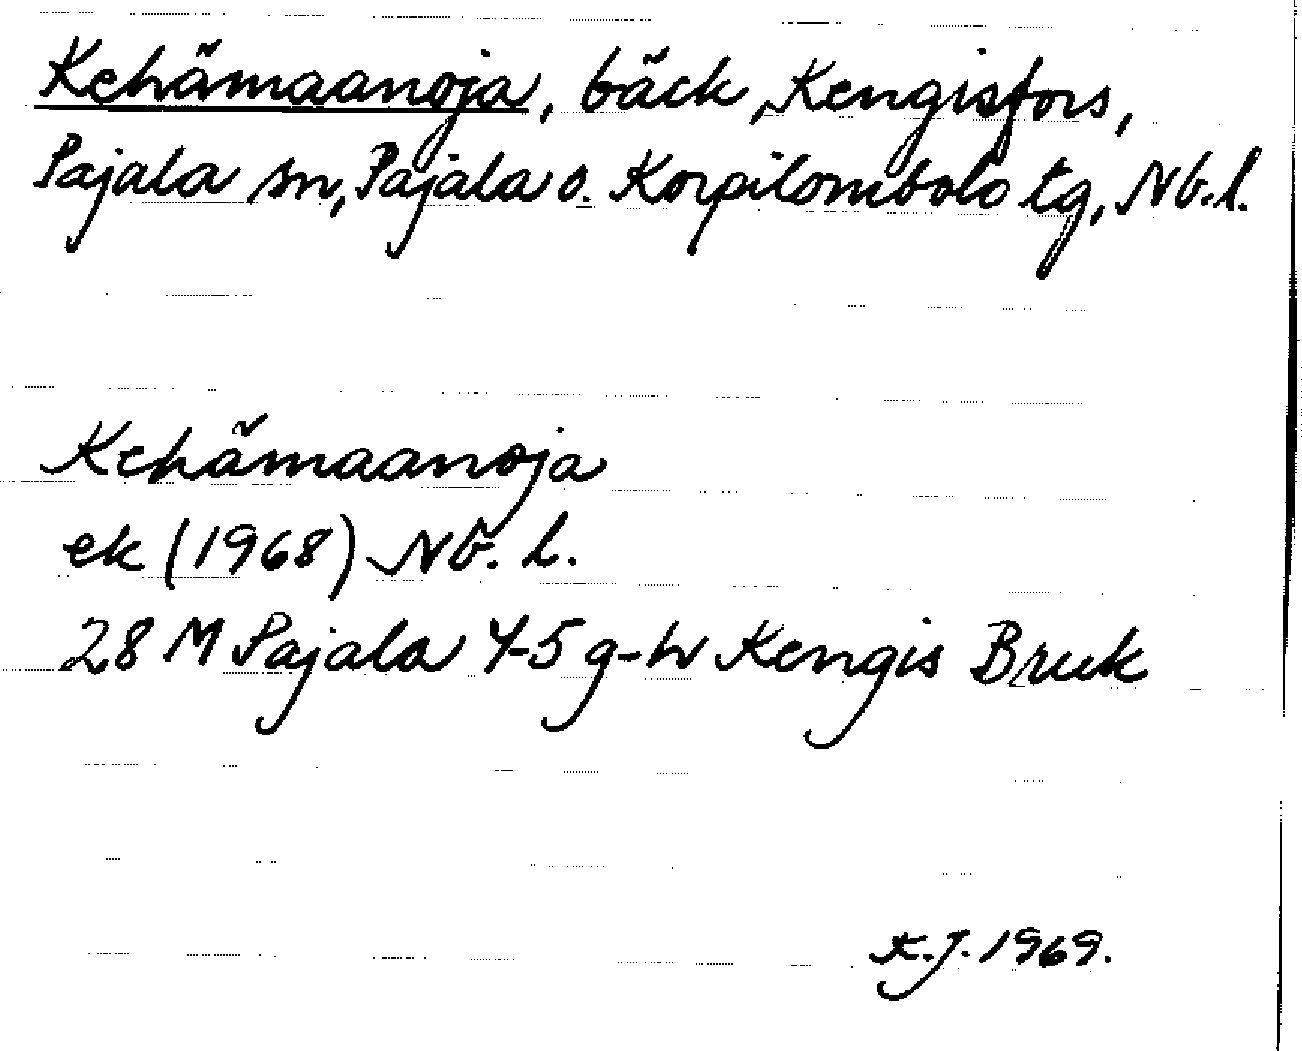 Kehämaanoja, bäck, Kengisfors,
Pajala sn, Pajala o. Korpilombolo tg, Nb.l.
Kehämaanoja
ek (1968) Nb. l.
28 M Pajala 4-5 g-h Kengis Bruk
K.J. 1969.